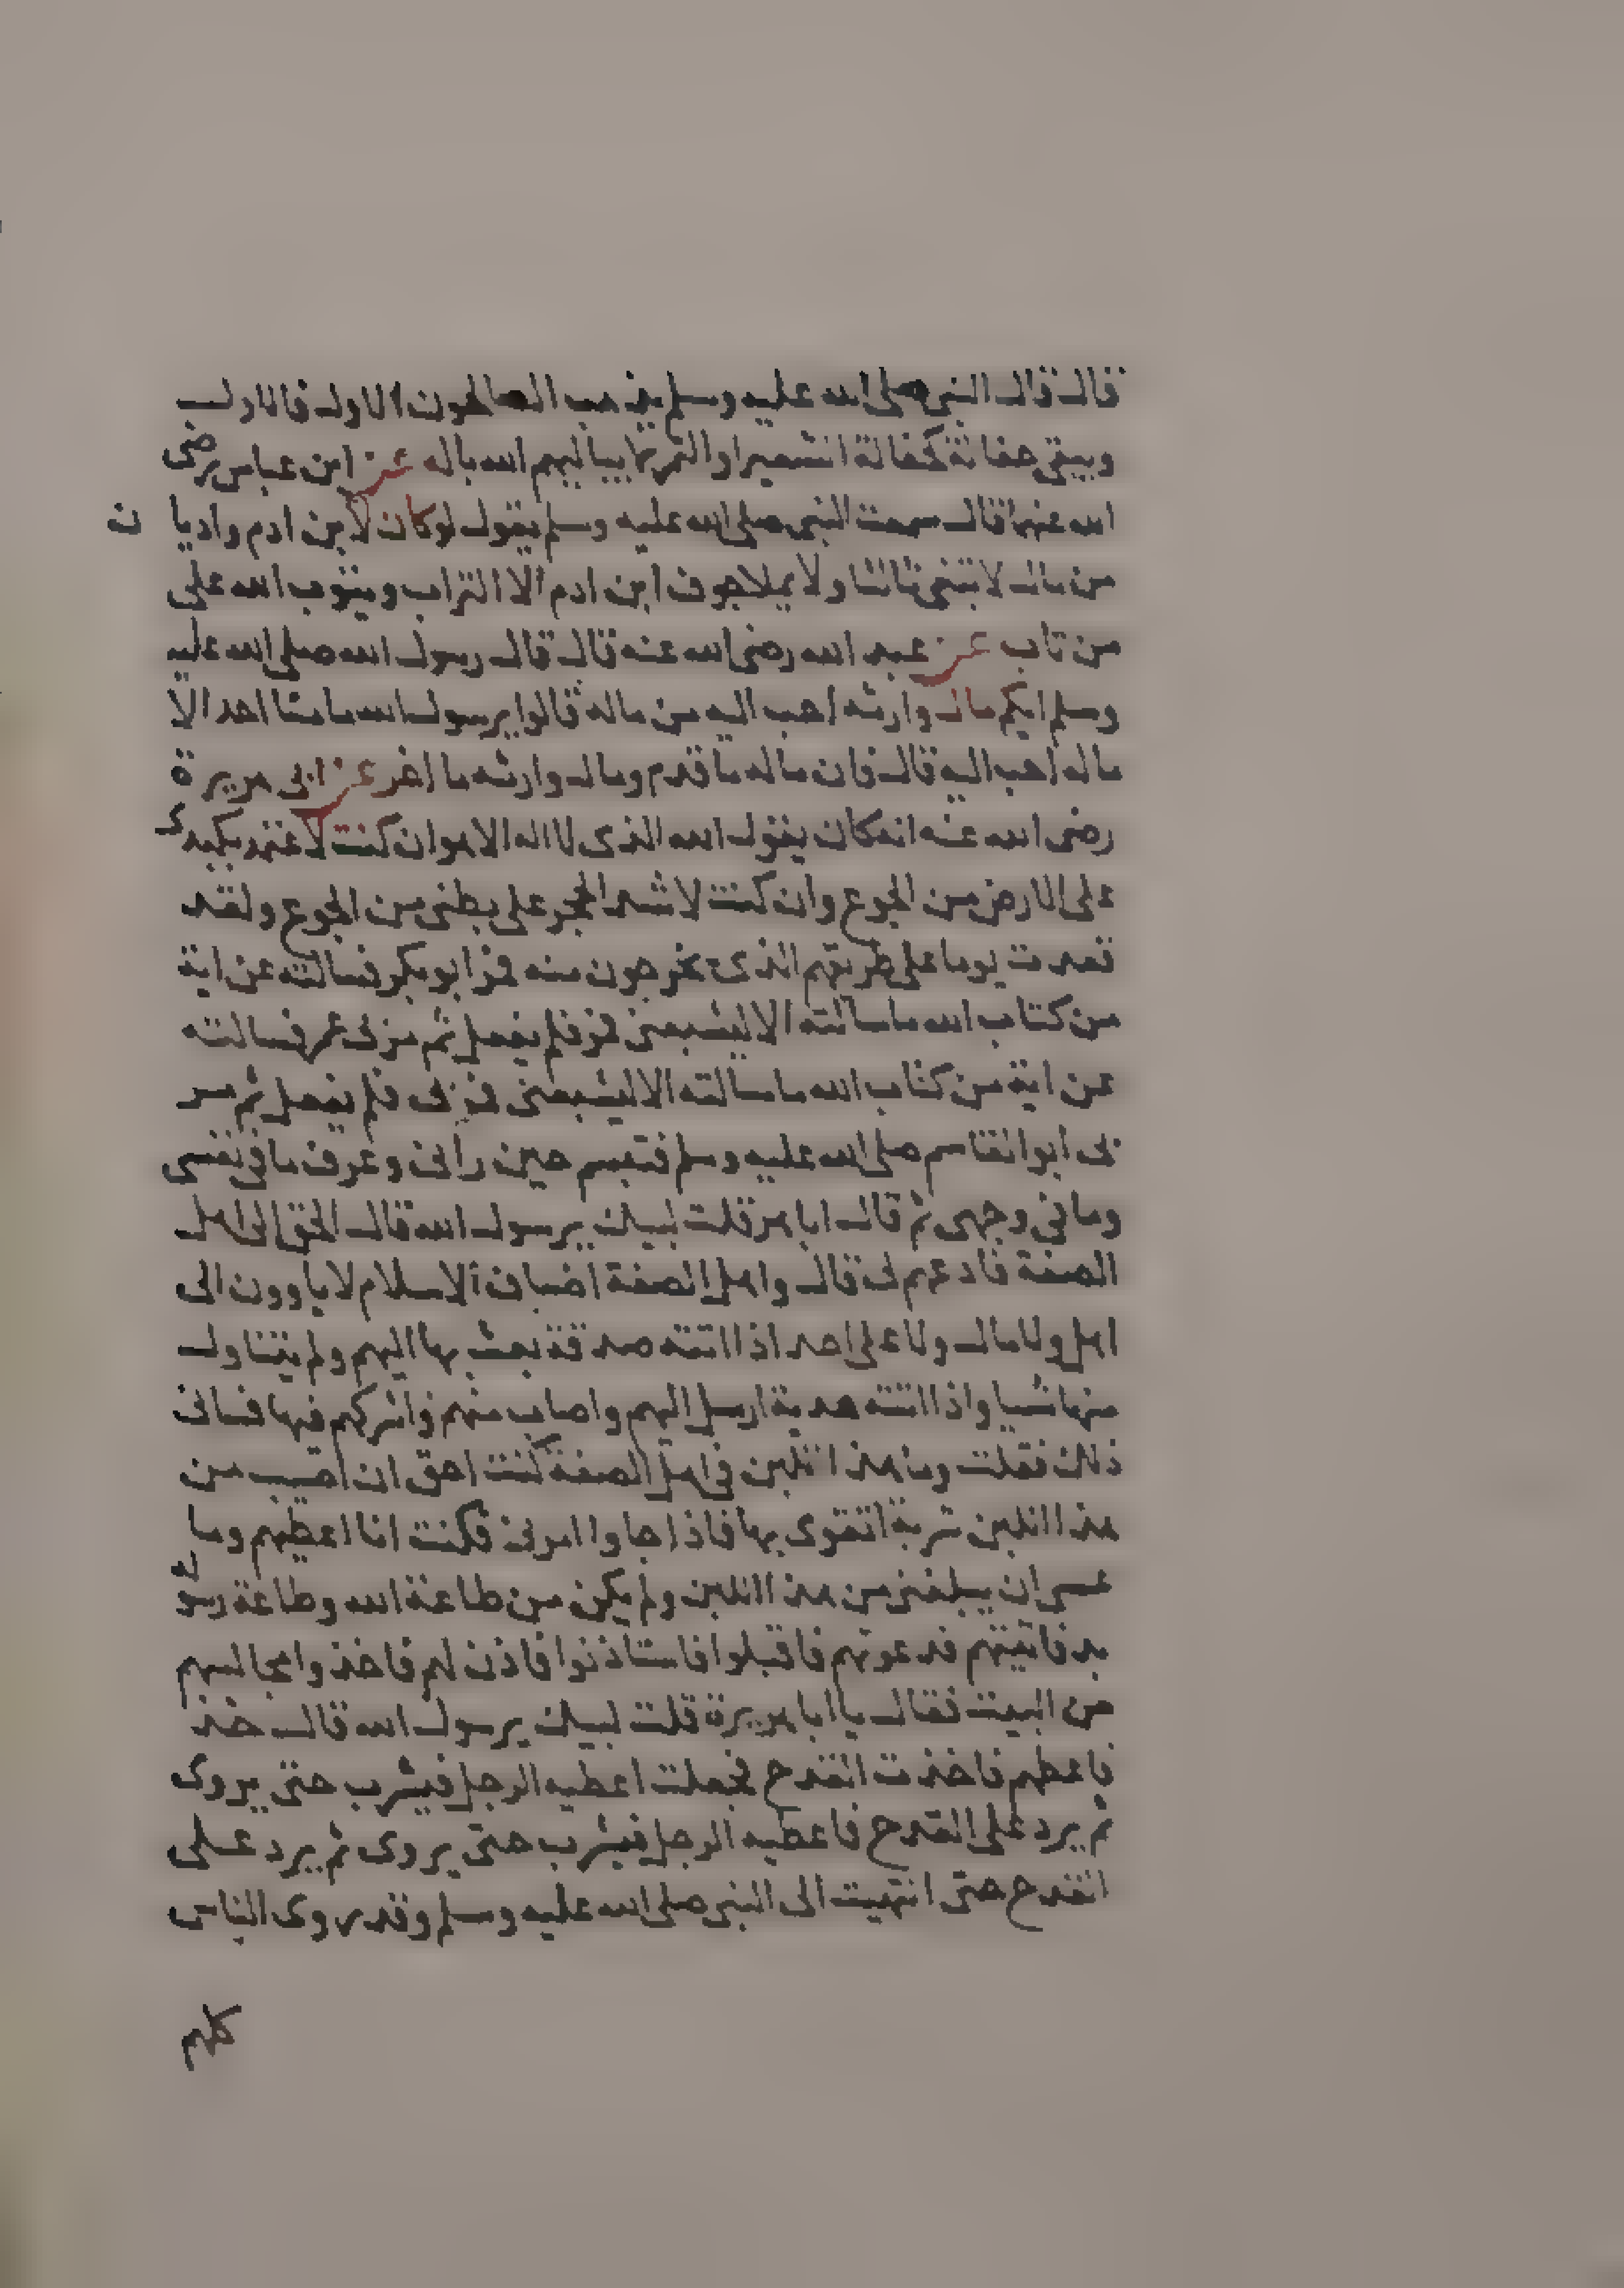 قال قال النبي صلى الله عليه وسلم يذهب الصالحون الاول فالاول
ويبقى حفالة كحفالة الشعير او التمر لا يباليهم الله بالة عن ابن عباس رضى
الله عنهما قال سمعت النبي صلى الله عليه وسلم يقول لو كان لابن ادم واديان
من مال لابتغى ثالثا ولا يملا جوف ابن ادم الا التراب ويتوب الله على
من تاب عن عبد الله رضى الله عنه قال قال رسول الله صلى الله عليه
وسلم ايكم مال وارثه احب اليه من ماله قالوا يرسول الله ما منا احد الا
ماله احب اليه قال فان ماله ما قدم ومال وارثه ما اخر عن ابى هريرة
رضى الله عنه انه كان يقول الله الذى لا اله الا هو ان كنت لاعتمد بكبدى
على الارض من الجوع وان كنت لاشد الحجر على بطنى من الجوع ولقد
قعدت يوما على طريقهم الذى يخرجون منه فمر ابو بكر فسالته عن اية
من كتاب الله ما سالته الا ليشبعنى فمر فلم يفعل ثم مر بى عمر فسالته
عن اية من كتاب الله ما سالته الا ليشبعنى فمر بى فلم يفعل ثم مر
بى ابو القاسم صلى الله عليه وسلم فتبسم حين رانى وعرف ما فى نفسى
وما فى وجهى ثم قال ابا هر قلت لبيك يرسول الله قال الحق الى اهل
الصفة فادعهم لى قال واهل الصفة اضياف الاسلام لا ياوون الى
اهل ولا مال ولا على احد اذا اتته صدقة بعث بها اليهم ولم يتناول
منها شيا واذا اتته هدية ارسل اليهم واصاب منهم واشركهم فيها فسانى
ذلك فقلت وما هذا اللبن فى اهل الصفة كنت احق ان اصيب من
هذا اللبن شربة اتقوى بها فاذا جاوا امرنى فكنت انا اعطيهم وما
عسى ان يبلغنى من هذا اللبن ولم يكن من طاعة الله وطاعة رسوله
بد فاتيتهم فدعوتهم فاقبلوا فاستاذنوا فاذن لهم فاخذوا مجالسهم
من البيت فقال يا ابا هريرة قلت لبيك يرسول الله قال خذ
فاعطهم فاخذت القدح فجعلت اعطيه الرجل فيشرب حتى يروى
ثم يرد على القدح فاعطيه الرجل فيشرب حتى يروى ثم يرد على
القدح حتى انتهيت الى النبي صلى الله عليه وسلم وقد روى الناس
كلهم